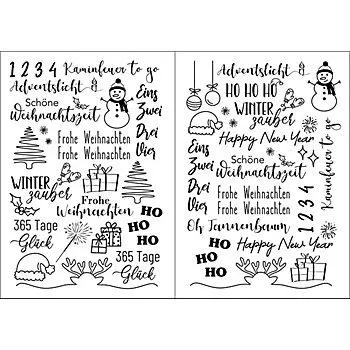 1 2 3 4 Kaminfeuer to go
Adventslicht
Schöne
Weihnachtszeit
Eins
Zwei
Drei
Vier
Frohe Weihnachten
Frohe Weihnachten
WINTER
zauber
Frohe
Weihnachten
365 Tage
Glück
HO
HO
HO
365 Tage
Glück
Adventslicht
HO HO HO
WINTER
zauber
Happy New Year
Eins
Zwei
Drei
Vier
Schöne
Weihnachtszeit
Frohe Weihnachten
Frohe Weihnachten
1 2 3 4
Kaminfeuer to go
Oh Tannenbaum
HO
HO
HO
Happy New Year